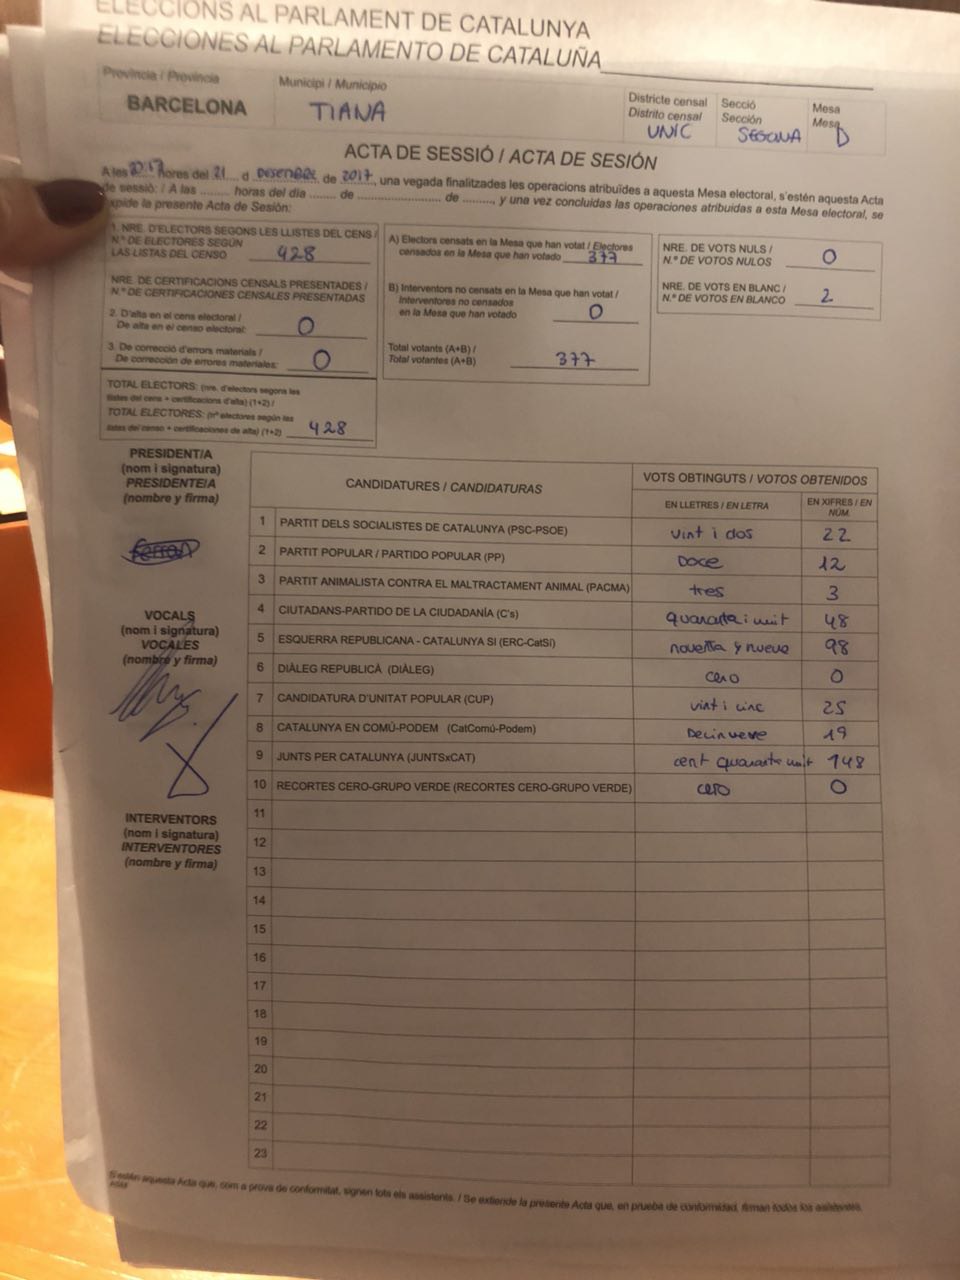 ELECCIONS AL PARLAMENT DE CATALUNYA
ELECCIONES AL PARLAMENTO DE CATALUÑA
Província / Provincia
BARCELONA
Municipi / Municipio
TIANA
Districte censal
Distrito censal
UNIC
Secció
Sección
SEGONA
Mesa
Mesa
D
ACTA DE SESSIÓ / ACTA DE SESIÓN
A les 2017 hores del 21 d DESEMBRE de 2017, una vegada finalitzades les operacions atribuïdes a aquesta Mesa electoral, s'estén aquesta Acta
de sessió: / A las ........ horas del día ....... de ...................... de ........, y una vez concluidas las operaciones atribuidas a esta Mesa electoral, se
expide la presente Acta de Sesión:
1. NRE. D'ELECTORS SEGONS LES LLISTES DEL CENS /
N.º DE ELECTORES SEGÚN
LAS LISTAS DEL CENSO 428
NRE. DE CERTIFICACIONS CENSALS PRESENTADES /
N.º DE CERTIFICACIONES CENSALES PRESENTADAS
2. D'alta en el cens electoral /
De alta en el censo electoral: 0
3. De correcció d'errors materials /
De corrección de errores materiales: 0
TOTAL ELECTORS: (nre. d'electors segons les
llistes del cens + certificacions d'alta) (1+2) /
TOTAL ELECTORES: (nº electores según las
listas del censo + certificaciones de alta) (1+2) 428
A) Electors censats en la Mesa que han votat / Electores
censados en la Mesa que han votado 377
B) Interventors no censats en la Mesa que han votat /
Interventores no censados
en la Mesa que han votado 0
Total votants (A+B) /
Total votantes (A+B) 377
NRE. DE VOTS NULS /
N.º DE VOTOS NULOS 0
NRE. DE VOTS EN BLANC /
N.º DE VOTOS EN BLANCO 2
PRESIDENT/A
(nom i signatura)
PRESIDENTE/A
(nombre y firma)
Ferran
VOCALS
(nom i signatura)
VOCALES
(nombre y firma)
INTERVENTORS
(nom i signatura)
INTERVENTORES
(nombre y firma)
CANDIDATURES / CANDIDATURAS
VOTS OBTINGUTS / VOTOS OBTENIDOS
EN LLETRES / EN LETRA
EN XIFRES / EN
NÚM.
1 PARTIT DELS SOCIALISTES DE CATALUNYA (PSC-PSOE) vint i dos 22
2 PARTIT POPULAR / PARTIDO POPULAR (PP) DOCE 12
3 PARTIT ANIMALISTA CONTRA EL MALTRACTAMENT ANIMAL (PACMA) tres 3
4 CIUTADANS-PARTIDO DE LA CIUDADANÍA (C's) quaranta i vuit 48
5 ESQUERRA REPUBLICANA - CATALUNYA SÍ (ERC-CatSí) noventa y nueve 98
6 DIÀLEG REPUBLICÀ (DIÀLEG) cero 0
7 CANDIDATURA D'UNITAT POPULAR (CUP) vint i cinc 25
8 CATALUNYA EN COMÚ-PODEM (CatComú-Podem) Decinueve 19
9 JUNTS PER CATALUNYA (JUNTSxCAT) cent quaranta vuit 148
10 RECORTES CERO-GRUPO VERDE (RECORTES CERO-GRUPO VERDE) cero 0
11
12
13
14
15
16
17
18
19
20
21
22
23
S'estén aquesta Acta que, com a prova de conformitat, signen tots els assistents. / Se extiende la presente Acta que, en prueba de conformidad, firman todos los asistentes.